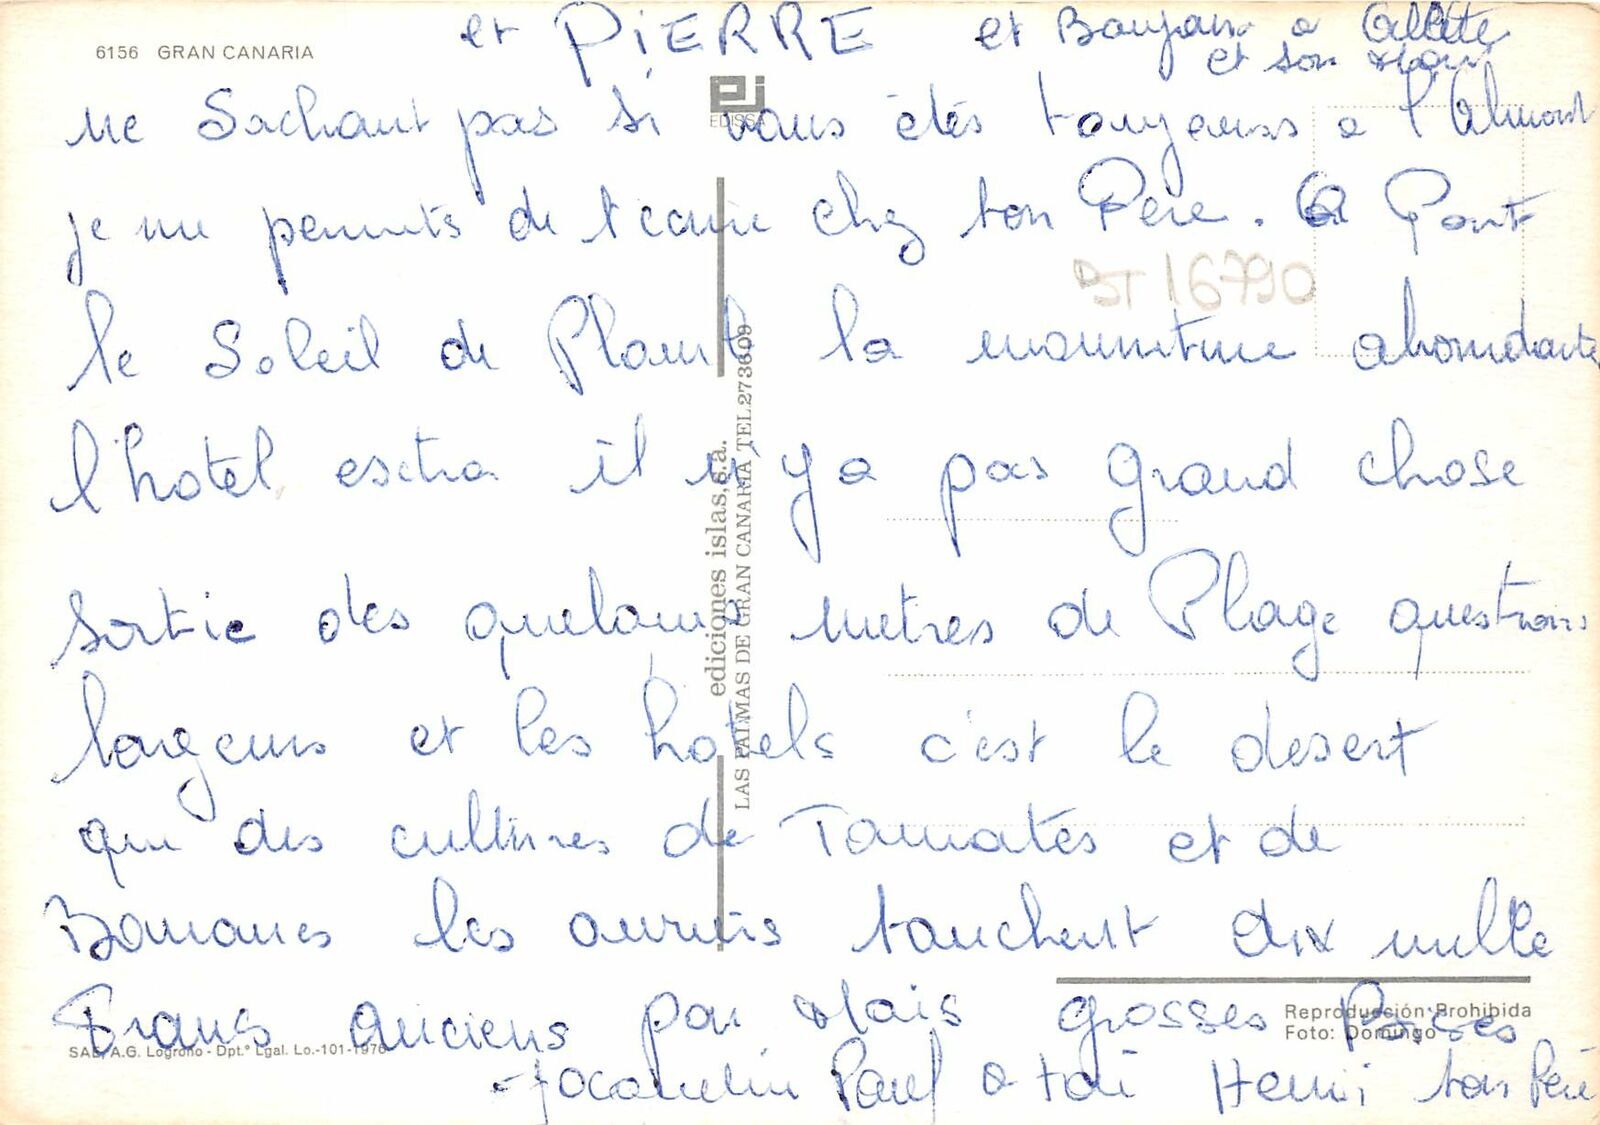 6156 GRAN CANARIA
et PIERRE et Bonjour a Collette
et son Mari
EDISSA
ne Sachant pas si vous étés toujours a l'
je me permets de t ecrire chez ton Père. a Part
DT 16790
le Soleil de Plomb la nourriture abondante
l'hotel extra il n'y a pas grand chose
Sortie des quelques mètres de Plage questions
longeurs et les hotels c'est le desert
que des cultures de Tomates et de
Bananes les ouvriers touchent dix mille
Francs anciens par Mois grosses Bises
Jocquelin Paul a toi Henri ton Père
ediciones islas, s.a.
LAS PALMAS DE GRAN CANARIA TEL.273609
Reproducción Prohibida
Foto: Domingo
SAE, A.G. Logroño - Dpt.º Lgal. Lo.-101-1976